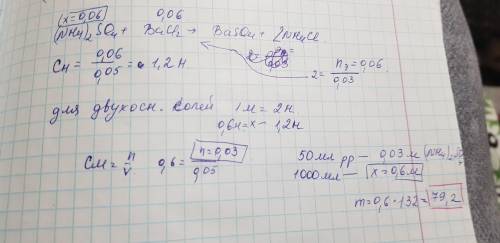 x=0,06 0,06
(NH4)2SO4 + BaCl2 → BaSO4 + 2NH4Cl
Cн = 0,06/0,05 = 1,2 н
2 = n2/0,03 = 0,06
для двухосн. солей 1М = 2н
0,6м = x - 1,2н
Cм = n/V 0,6 = n=0,03/0,05
50мл рр — 0,03 м (NH4)2
1000мл — x=0,6м
m=0,6·132=79,2